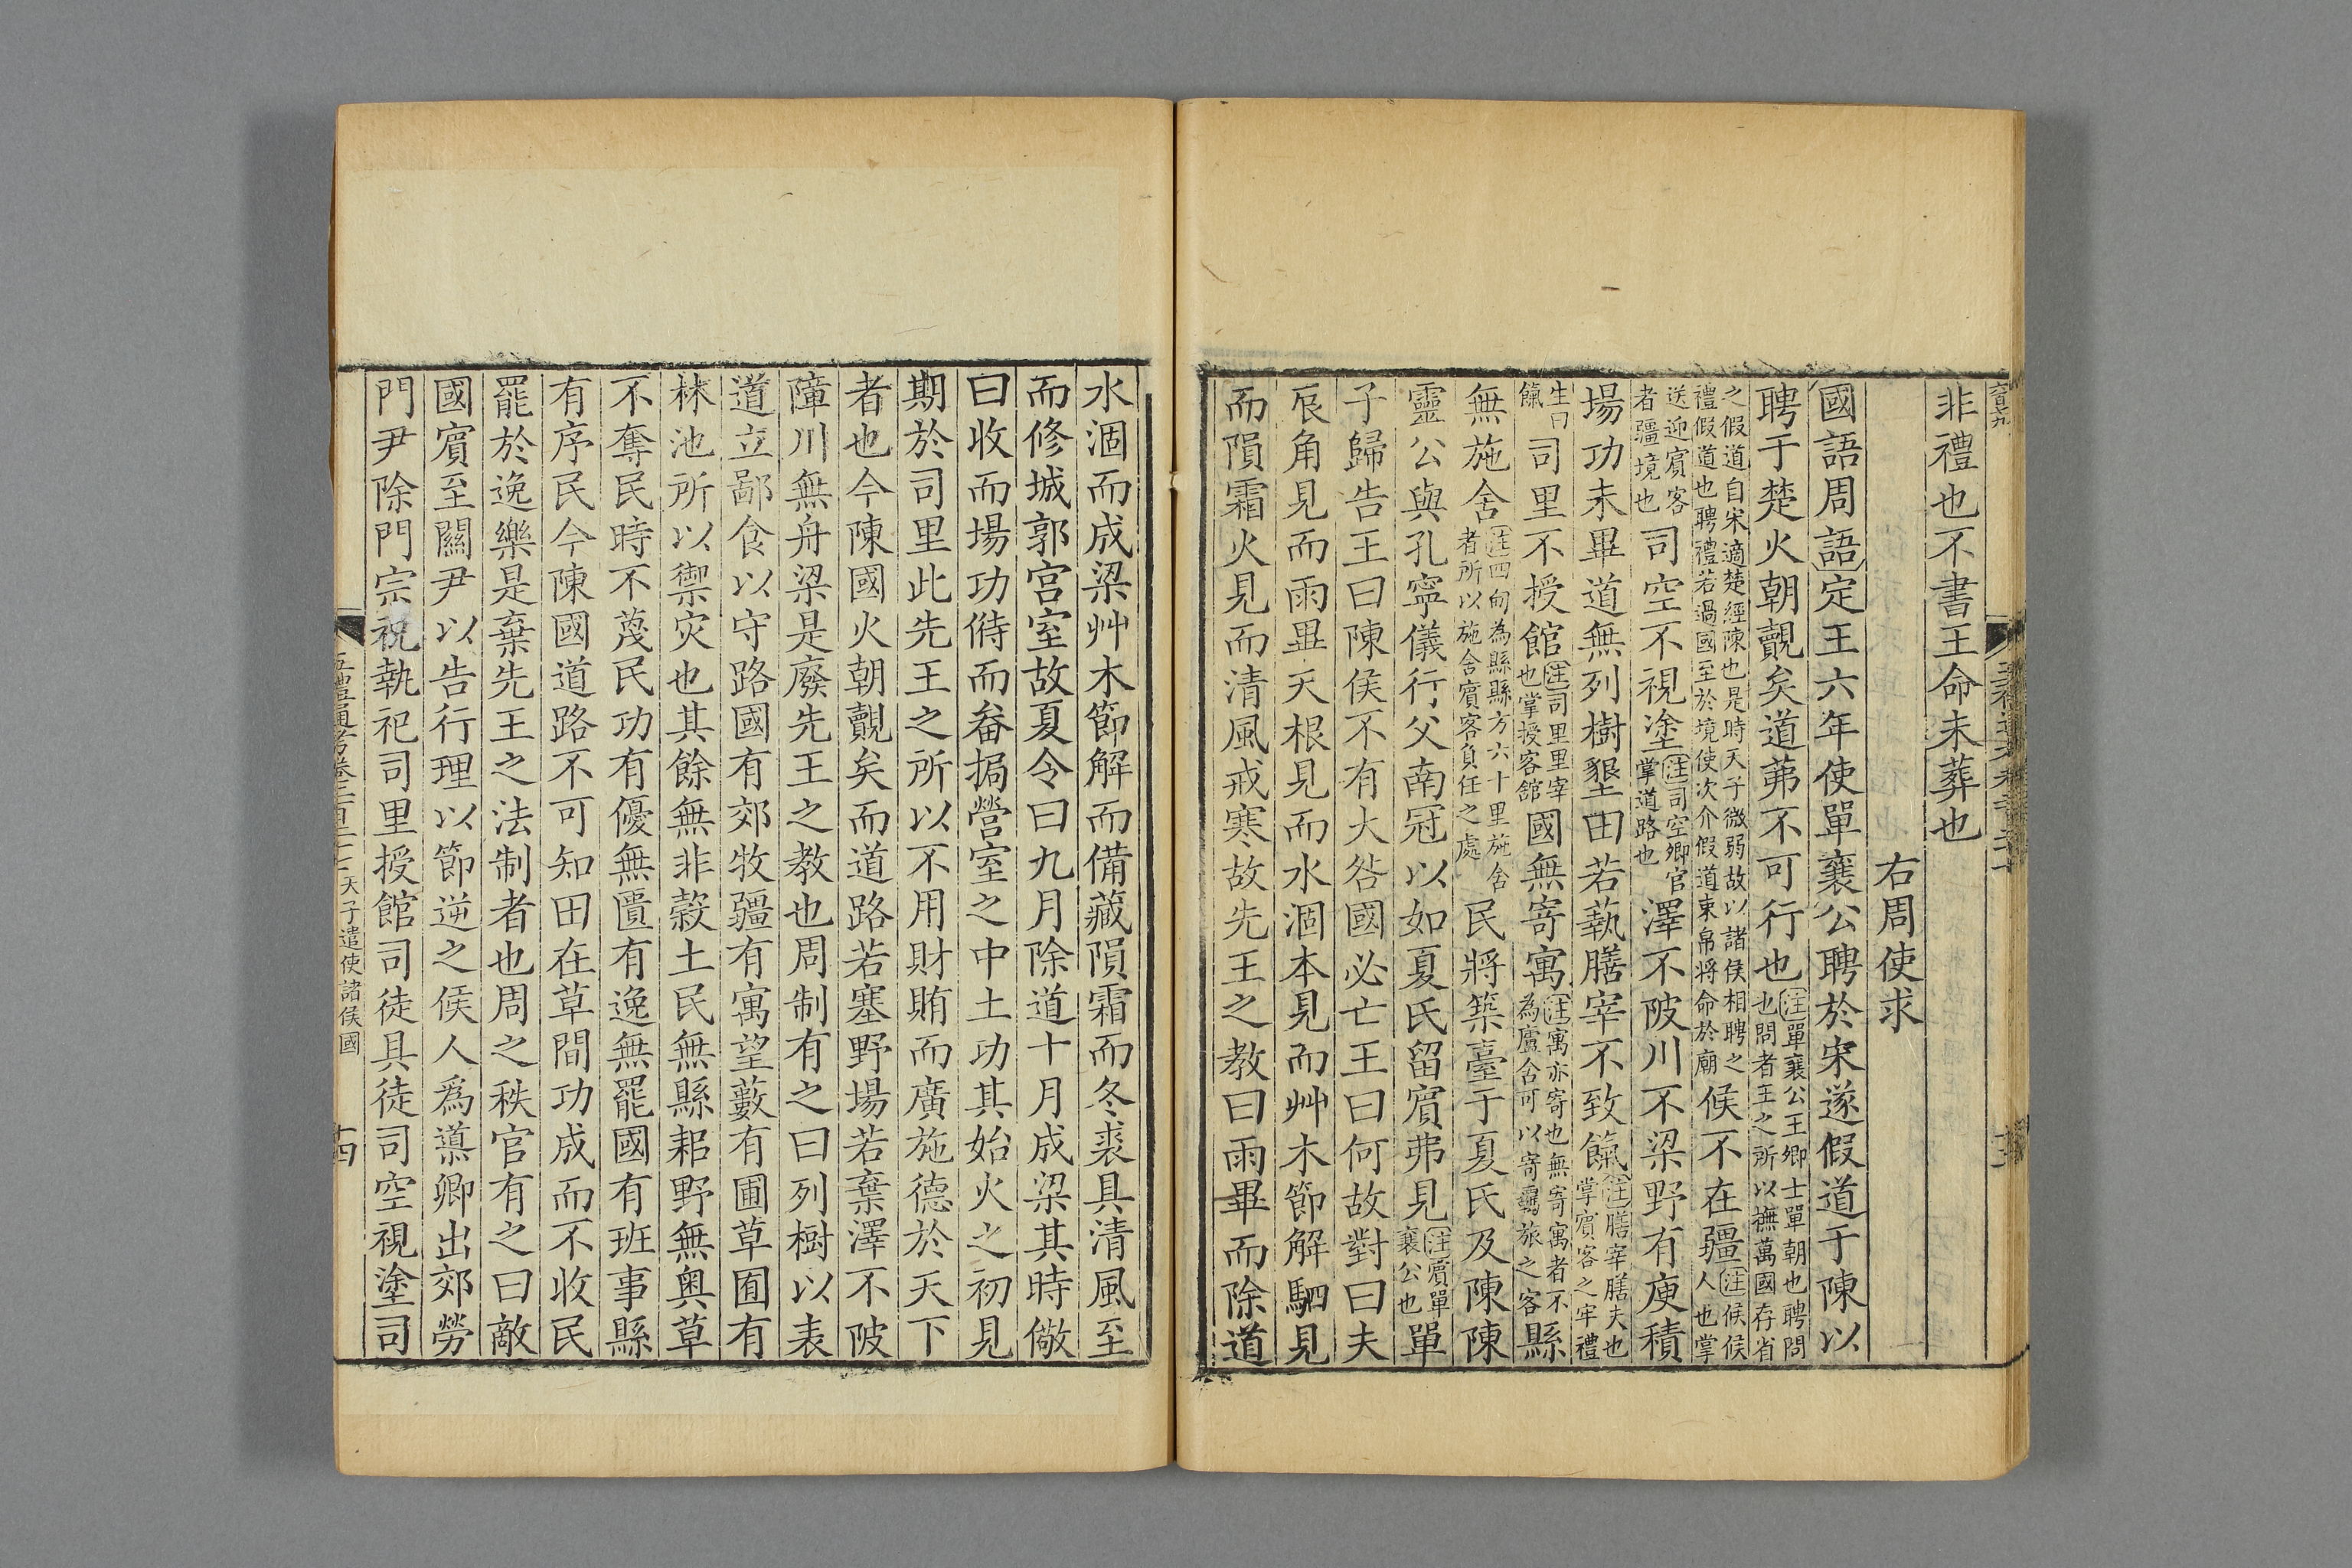 非禮也不書王命未葬也
右周使求
國語周語定王六年使單襄公聘於宋遂假道于陳以
聘于楚火朝覿矣道茀不可行也注單襄公王卿士單朝也聘問也問者王之所以撫萬國存省
之假道自宋適楚經陳也是時天子微弱故以諸侯相聘之禮假道也聘禮若過國至於境使次介假道束帛將命於廟候不在疆注候候人也掌
送迎賓客者疆境也司空不視塗注司空卿官掌道路也澤不陂川不梁野有庾積
場功未畢道無列樹墾田若蓺膳宰不致餼注膳宰膳夫也掌賓客之牢禮
生曰餼司里不授館注司里里宰也掌授客館國無寄寓注寓亦寄也無寄寓者不為廬舍可以寄羈旅之客縣
無施舍注四甸為縣縣方六十里施舍者所以施舍賓客負任之處民將築臺于夏氏及陳陳
靈公與孔寧儀行父南冠以如夏氏留賓弗見注賓單襄公也單
子歸告王曰陳侯不有大咎國必亡王曰何故對曰夫
辰角見而雨畢天根見而水涸本見而艸木節解駟見
而隕霜火見而清風戒寒故先王之教曰雨畢而除道
水涸而成梁艸木節解而備藏隕霜而冬裘具清風至
而修城郭宮室故夏令曰九月除道十月成梁其時儆
曰收而場功偫而畚挶營室之中土功其始火之初見
期於司里此先王之所以不用財賄而廣施德於天下
者也今陳國火朝覿矣而道路若塞野場若棄澤不陂
障川無舟梁是廢先王之教也周制有之曰列樹以表
道立鄙食以守路國有郊牧疆有寓望藪有圃草囿有
林池所以禦灾也其餘無非穀土民無縣耜野無奧草
不奪民時不蔑民功有優無匱有逸無罷國有班事縣
有序民今陳國道路不可知田在草間功成而不收民
罷於逸樂是棄先王之法制者也周之秩官有之曰敵
國賓至關尹以告行理以節逆之候人爲導卿出郊勞
門尹除門宗祝執祀司里授館司徒具徒司空視塗司
五禮通考卷二百二十七 天子遣使諸侯國 十四